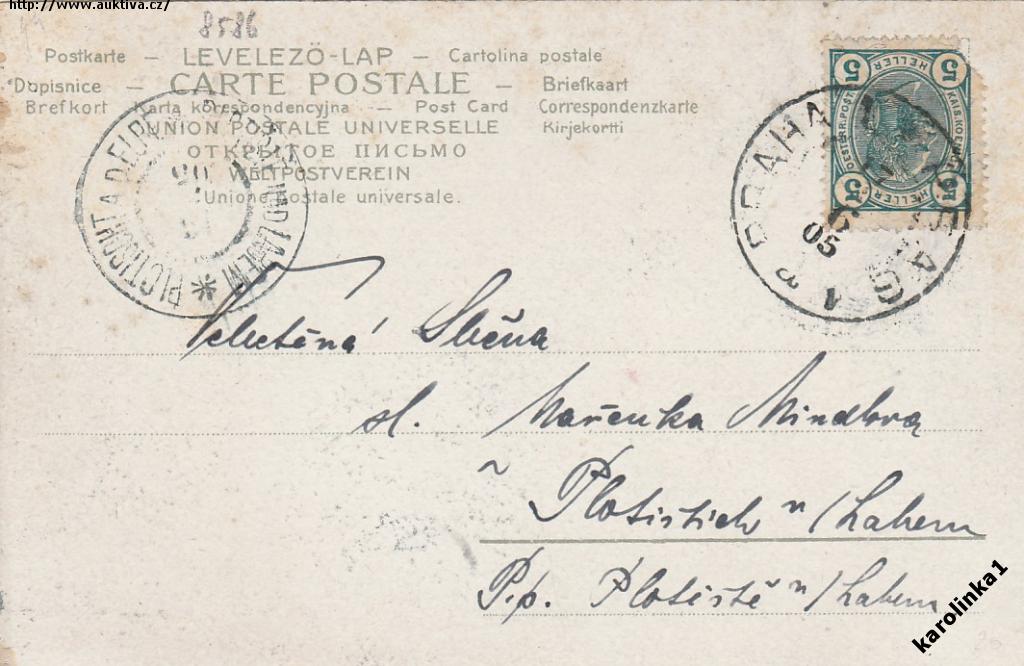 http://www.auktiva.cz/
8586
Postkarte – LEVELEZŐ-LAP – Cartolina postale
Dopisnice – CARTE POSTALE – Briefkaart
Brefkort – Karta korespondencyjna – Post Card Correspondenzkarte
UNION POSTALE UNIVERSELLE Kirjekortti
ОТКРЫТОЕ ПИСЬМО
WELTPOSTVEREIN
Unione postale universale.
5 HELLER 5
OESTERR. POST
5 HELLER 5
PRAHA
PRAG
05
1
PLOTIŠTĚ NAD LABEM
Veletěná Slečna
sl. Mařenka Mindlova
v Plotistich n/Labem
P.p. Plotiště n/Labem
karolinka1